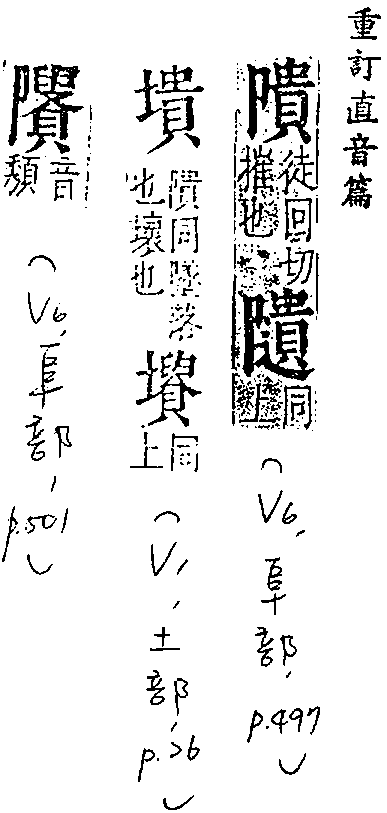 重訂直音篇
隤 徒回切摧也 同上
(V6, 阜部, p.497)
墤 隤同墜落也壞也 同上
(V1, 土部, p.26)
音頽
(V6, 阜部, p.501)